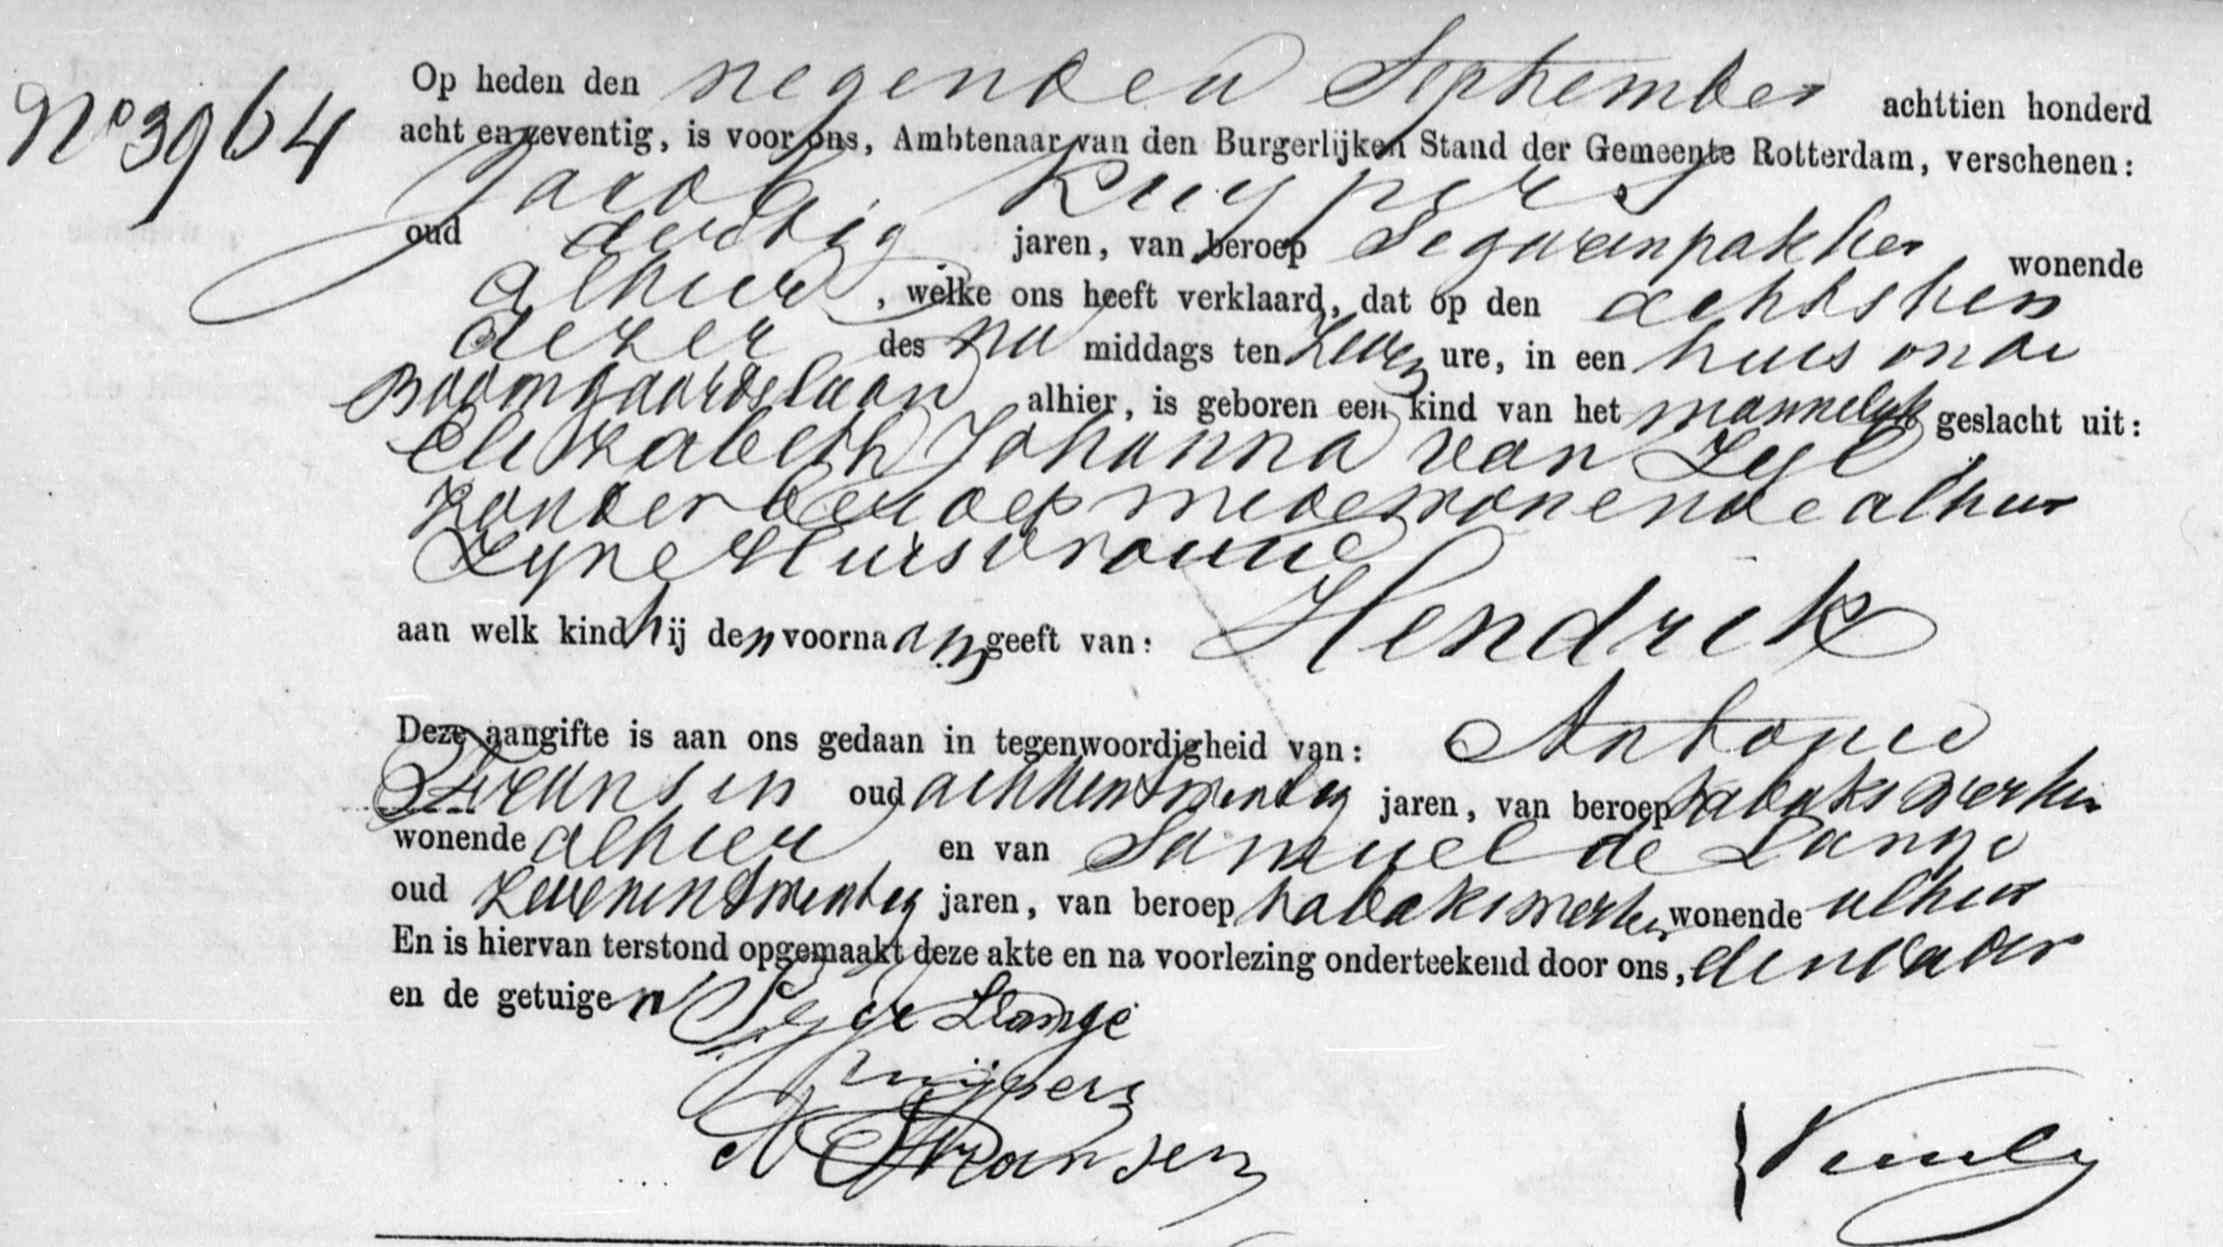 No 3964
Op heden den negenden September achttien honderd
acht en zeventig, is voor ons, Ambtenaar van den Burgerlijken Stand der Gemeente Rotterdam, verschenen:
Jacob Kuypers
oud dertig jaren, van beroep Segarenpakker wonende
alhier, welke ons heeft verklaard, dat op den achtsten
dezer des na middags ten zeven ure, in een huis on de
Boomgaardslaan alhier, is geboren een kind van het mannelyk geslacht uit:
Elizabeth Johanna van Zyl
zonder beroep mede wonende alhier
Zyne Huisvrouw
aan welk kind hij den voornaam geeft van: Hendrik
Deze aangifte is aan ons gedaan in tegenwoordigheid van: Antonie
Fransen oud achtentwintig jaren, van beroep tabakswerker
wonende alhier en van Samuel de Lange
oud zevenentwintig jaren, van beroep tabakswerker wonende alhier
En is hiervan terstond opgemaakt deze akte en na voorlezing onderteekend door ons, den vader
en de getuigen
S de Lange
Kuijpers
A Fransen